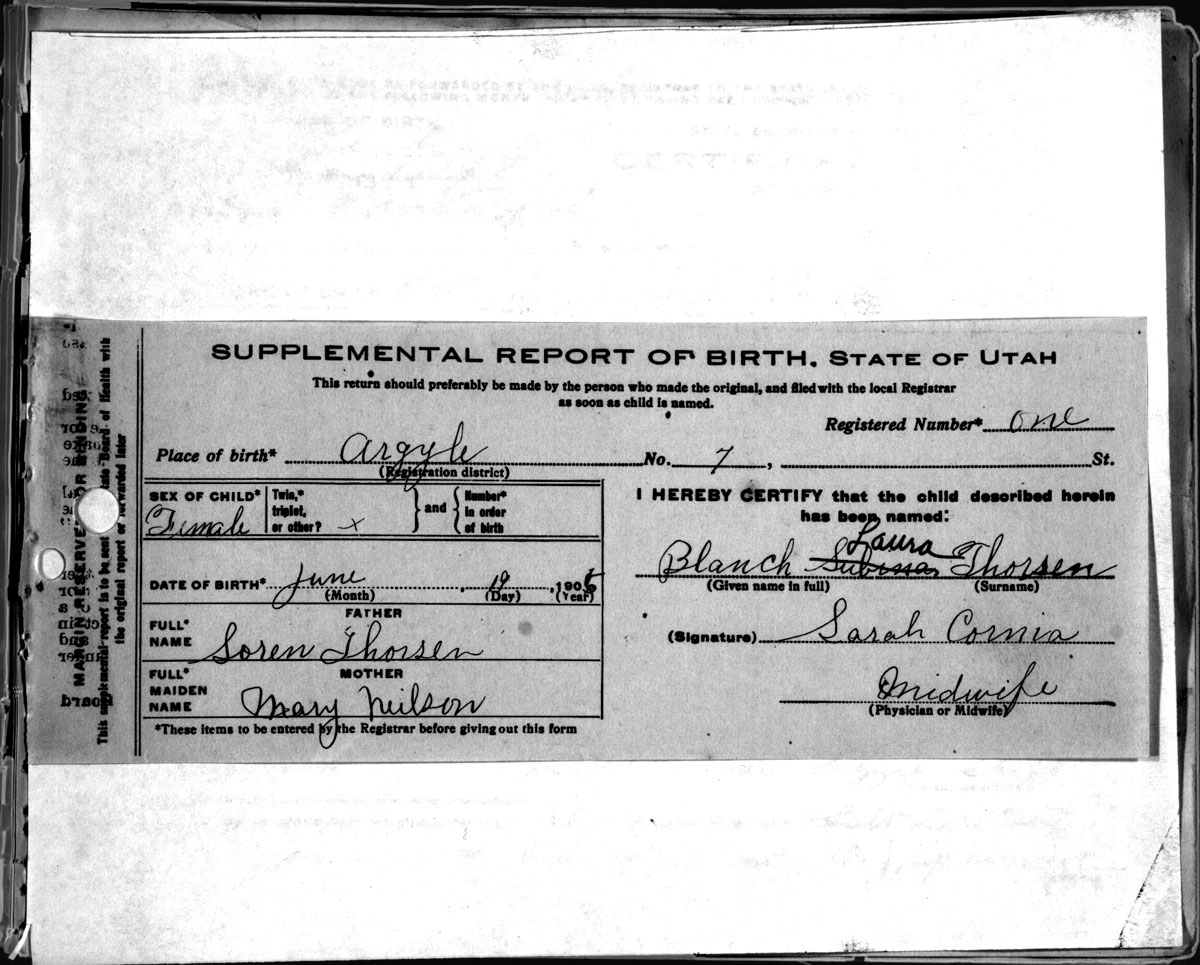 SUPPLEMENTAL REPORT OF BIRTH, STATE OF UTAH
This return should preferably be made by the person who made the original, and filed with the local Registrar
as soon as child is named.
Registered Number* one
Place of birth* Argyle No. 7, St.
(Registration district)
SEX OF CHILD* Female
Twin,*
triplet,
or other? x
and
Number*
in order
of birth
DATE OF BIRTH* June 19, 190
(Month) (Day) (Year)
FATHER
FULL*
NAME Soren Thorsen
MOTHER
FULL*
MAIDEN
NAME Mary Neilson
*These items to be entered by the Registrar before giving out this form
I HEREBY CERTIFY that the child described herein
has been named:
Laura
Blanch Thorsen
(Given name in full) (Surname)
(Signature) Sarah Cornia
Midwife
(Physician or Midwife)
MARGIN RESERVED FOR BINDING
This supplemental report is to be sent State Board of Health with
the original report or forwarded later